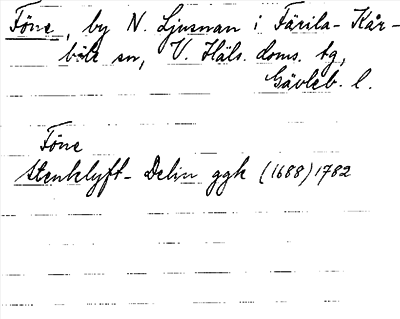 Föne, by N. Ljusnan i Färila-Kår-
böle sn, V. Häls. doms. tg,
Gävleb. l.
Föne
Stenklyft- Delin ggk (1688) 1782